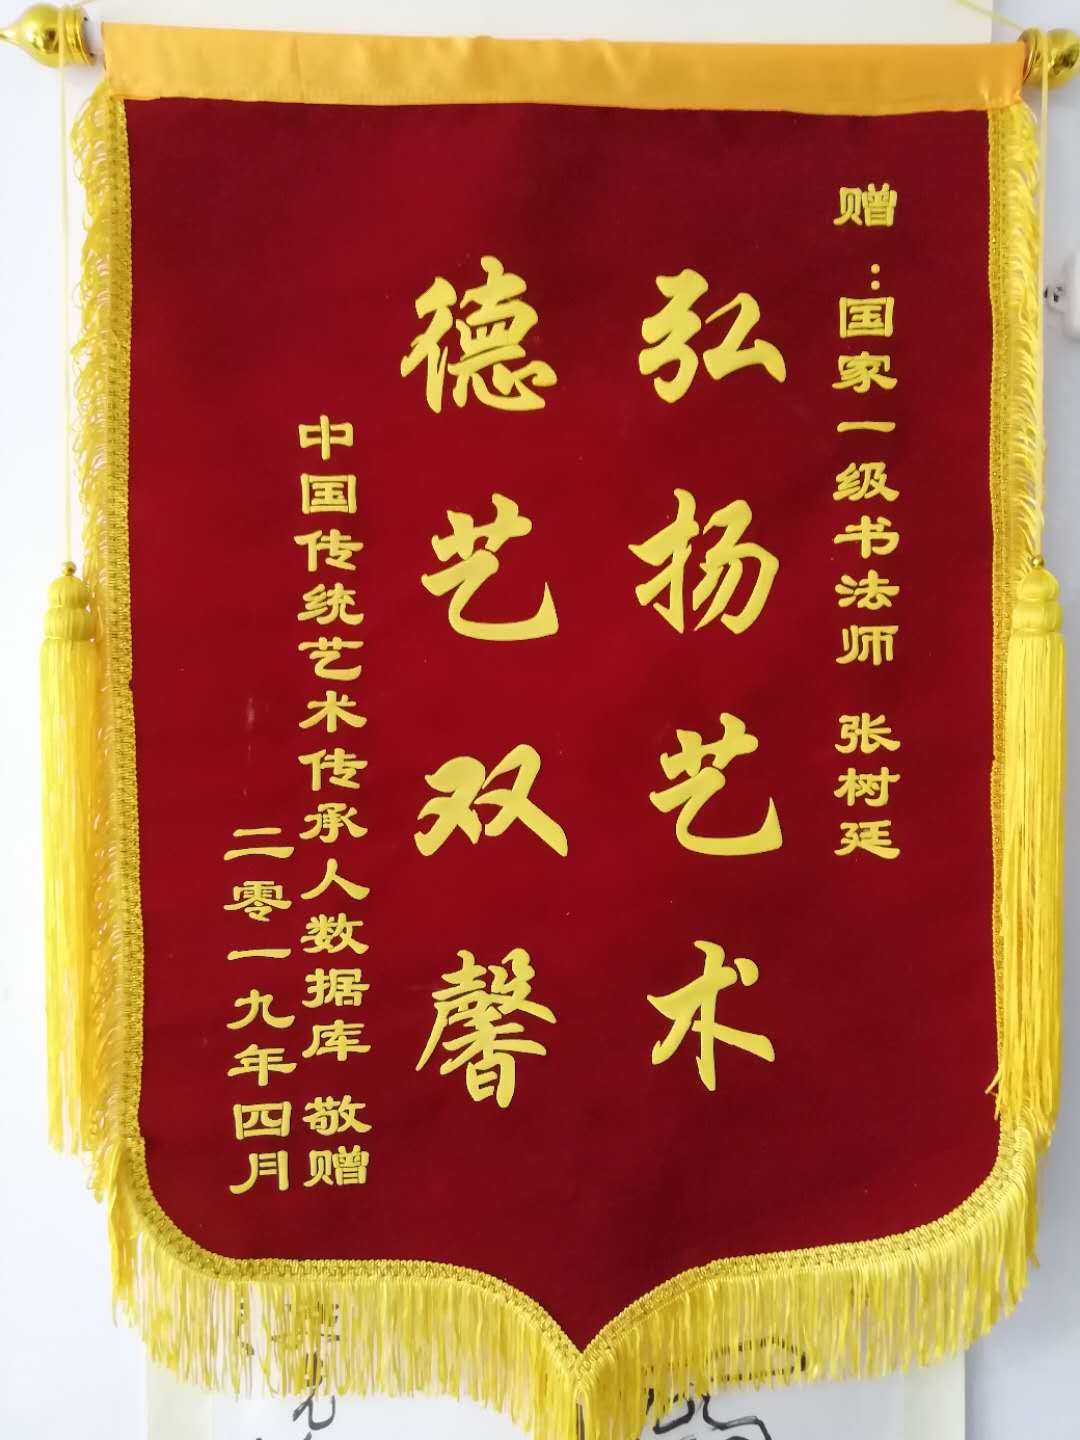 赠：国家一级书法师 张树廷
弘扬艺术
德艺双馨
中国传统艺术传承人数据库 敬赠
二零一九年四月